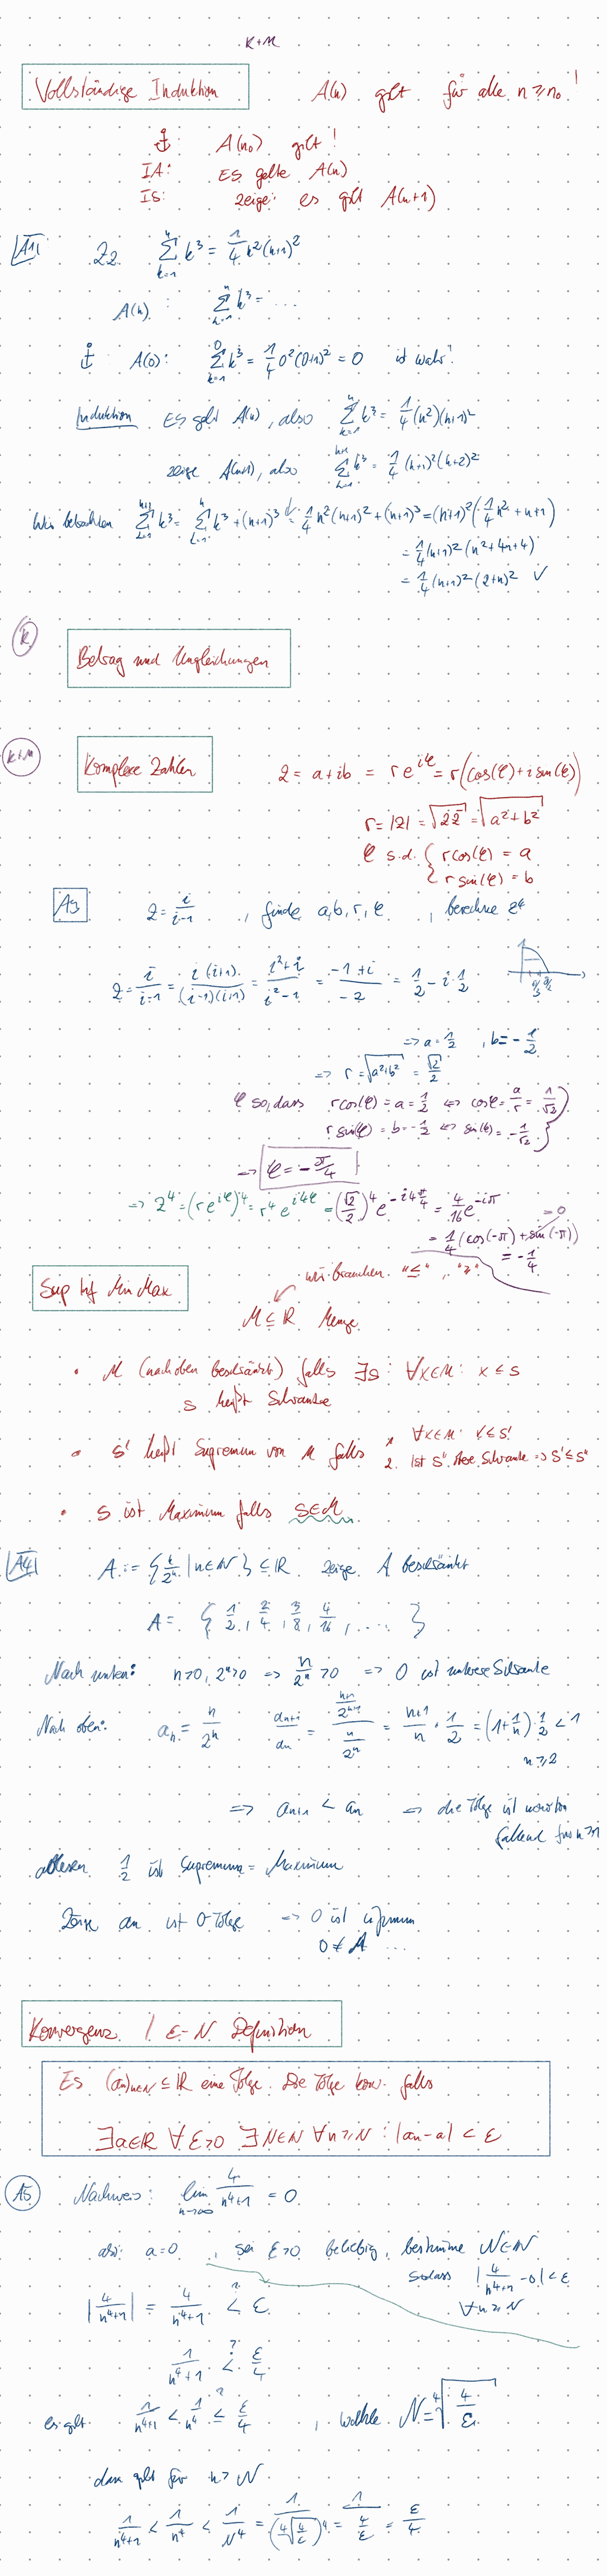 K+M
Vollständige Induktion A(n) gilt für alle n ≥ n₀!
⚓ A(n₀) gilt!
IA: Es gelte A(n)
IS: zeige: es gilt A(n+1)
A1 Zz. ∑_{k=1}^{n} k³ = 1/4 n²(n+1)²
A(n): ∑_{k=1}^{n} k³ = ...
⚓ A(0): ∑_{k=1}^{0} k³ = 1/4 0²(0+1)² = 0 ist wahr!
Induktion Es gelt A(n), also ∑_{k=1}^{n} k³ = 1/4 (n²)(n+1)²
zeige A(n+1), also ∑_{k=1}^{n+1} k³ = 1/4 (n+1)²(n+2)²
Wir betrachten ∑_{k=1}^{n+1} k³ = ∑_{k=1}^{n} k³ + (n+1)³ = 1/4 n²(n+1)² + (n+1)³ = (n+1)²(1/4 n² + n+1)
= 1/4 (n+1)²(n²+4n+4)
= 1/4 (n+1)²(2+n)² ✓
K
Betrag und Ungleichungen
K+M
Komplexe Zahlen z = a+ib = r e^{iφ} = r(cos(φ)+i sin(φ))
r = |z| = √(z z̄) = √(a²+b²)
φ s.d. { r cos(φ) = a
{ r sin(φ) = b
A3 z = i/(i-1), finde a,b,r,φ, berechne z⁴
z = i/(i-1) = i(i+1)/((i-1)(i+1)) = (i²+i)/(i²-1) = (-1+i)/(-2) = 1/2 - i·1/2
=> a = 1/2, b = -1/2
=> r = √(a²+b²) = √2/2
φ so, dass r cos(φ) = a = 1/2 <=> cos φ = a/r = 1/√2
r sin(φ) = b = -1/2 <=> sin(φ) = -1/√2
=> φ = -π/4
=> z⁴ = (r e^{iφ})⁴ = r⁴ e^{i4φ} = (√2/2)⁴ e^{-i4π/4} = 4/16 e^{-iπ}
= 1/4 (cos(-π) + sin(-π)) =0
= -1/4
Sup Inf Min Max wir brauchen "≤", "≥"
M ⊆ ℝ Menge
• M (nach oben beschränkt) falls ∃s: ∀x∈M: x ≤ s
s heißt Schranke
• s' heißt Supremum von M falls 1. ∀x∈M: x ≤ s'
2. Ist s'' obere Schranke => s' ≤ s''
• s ist Maximum falls s∈M
A4 A := {n/2ⁿ | n∈ℕ} ⊆ ℝ zeige A beschränkt
A = {1/2, 2/4, 3/8, 4/16, ....}
Nach unten: n>0, 2ⁿ>0 => n/2ⁿ > 0 => 0 ist untere Schranke
Nach oben: aₙ = n/2ⁿ aₙ₊₁/aₙ = ((n+1)/2ⁿ⁺¹)/(n/2ⁿ) = (n+1)/n · 1/2 = (1+1/n)·1/2 < 1
n ≥ 2
=> aₙ₊₁ < aₙ => die Folge ist monoton
fallend für n>1
ablesen 1/2 ist Supremum = Maximum
Zeige aₙ ist 0-Folge => 0 ist Infimum
0 ∉ A ...
Konvergenz / ε-N Definition
Es (aₙ)ₙ∈ℕ ⊆ ℝ eine Folge. Die Folge konv. falls
∃a∈ℝ ∀ε>0 ∃N∈ℕ ∀n≥N: |aₙ-a| < ε
A5 Nachweis: lim_{n→∞} 4/(n⁴+1) = 0
also a=0, sei ε>0 beliebig, bestimme N∈ℕ
sodass |4/(n⁴+1) - 0| < ε
∀n≥N
|4/(n⁴+1)| = 4/(n⁴+1) <? ε
1/(n⁴+1) <? ε/4
es gilt 1/(n⁴+1) < 1/n⁴ ≤? ε/4, wähle N = ⁴√(4/ε)
dann gilt für n>N
1/(n⁴+1) < 1/n⁴ < 1/N⁴ = 1/(⁴√(4/ε))⁴ = 1/(4/ε) = ε/4